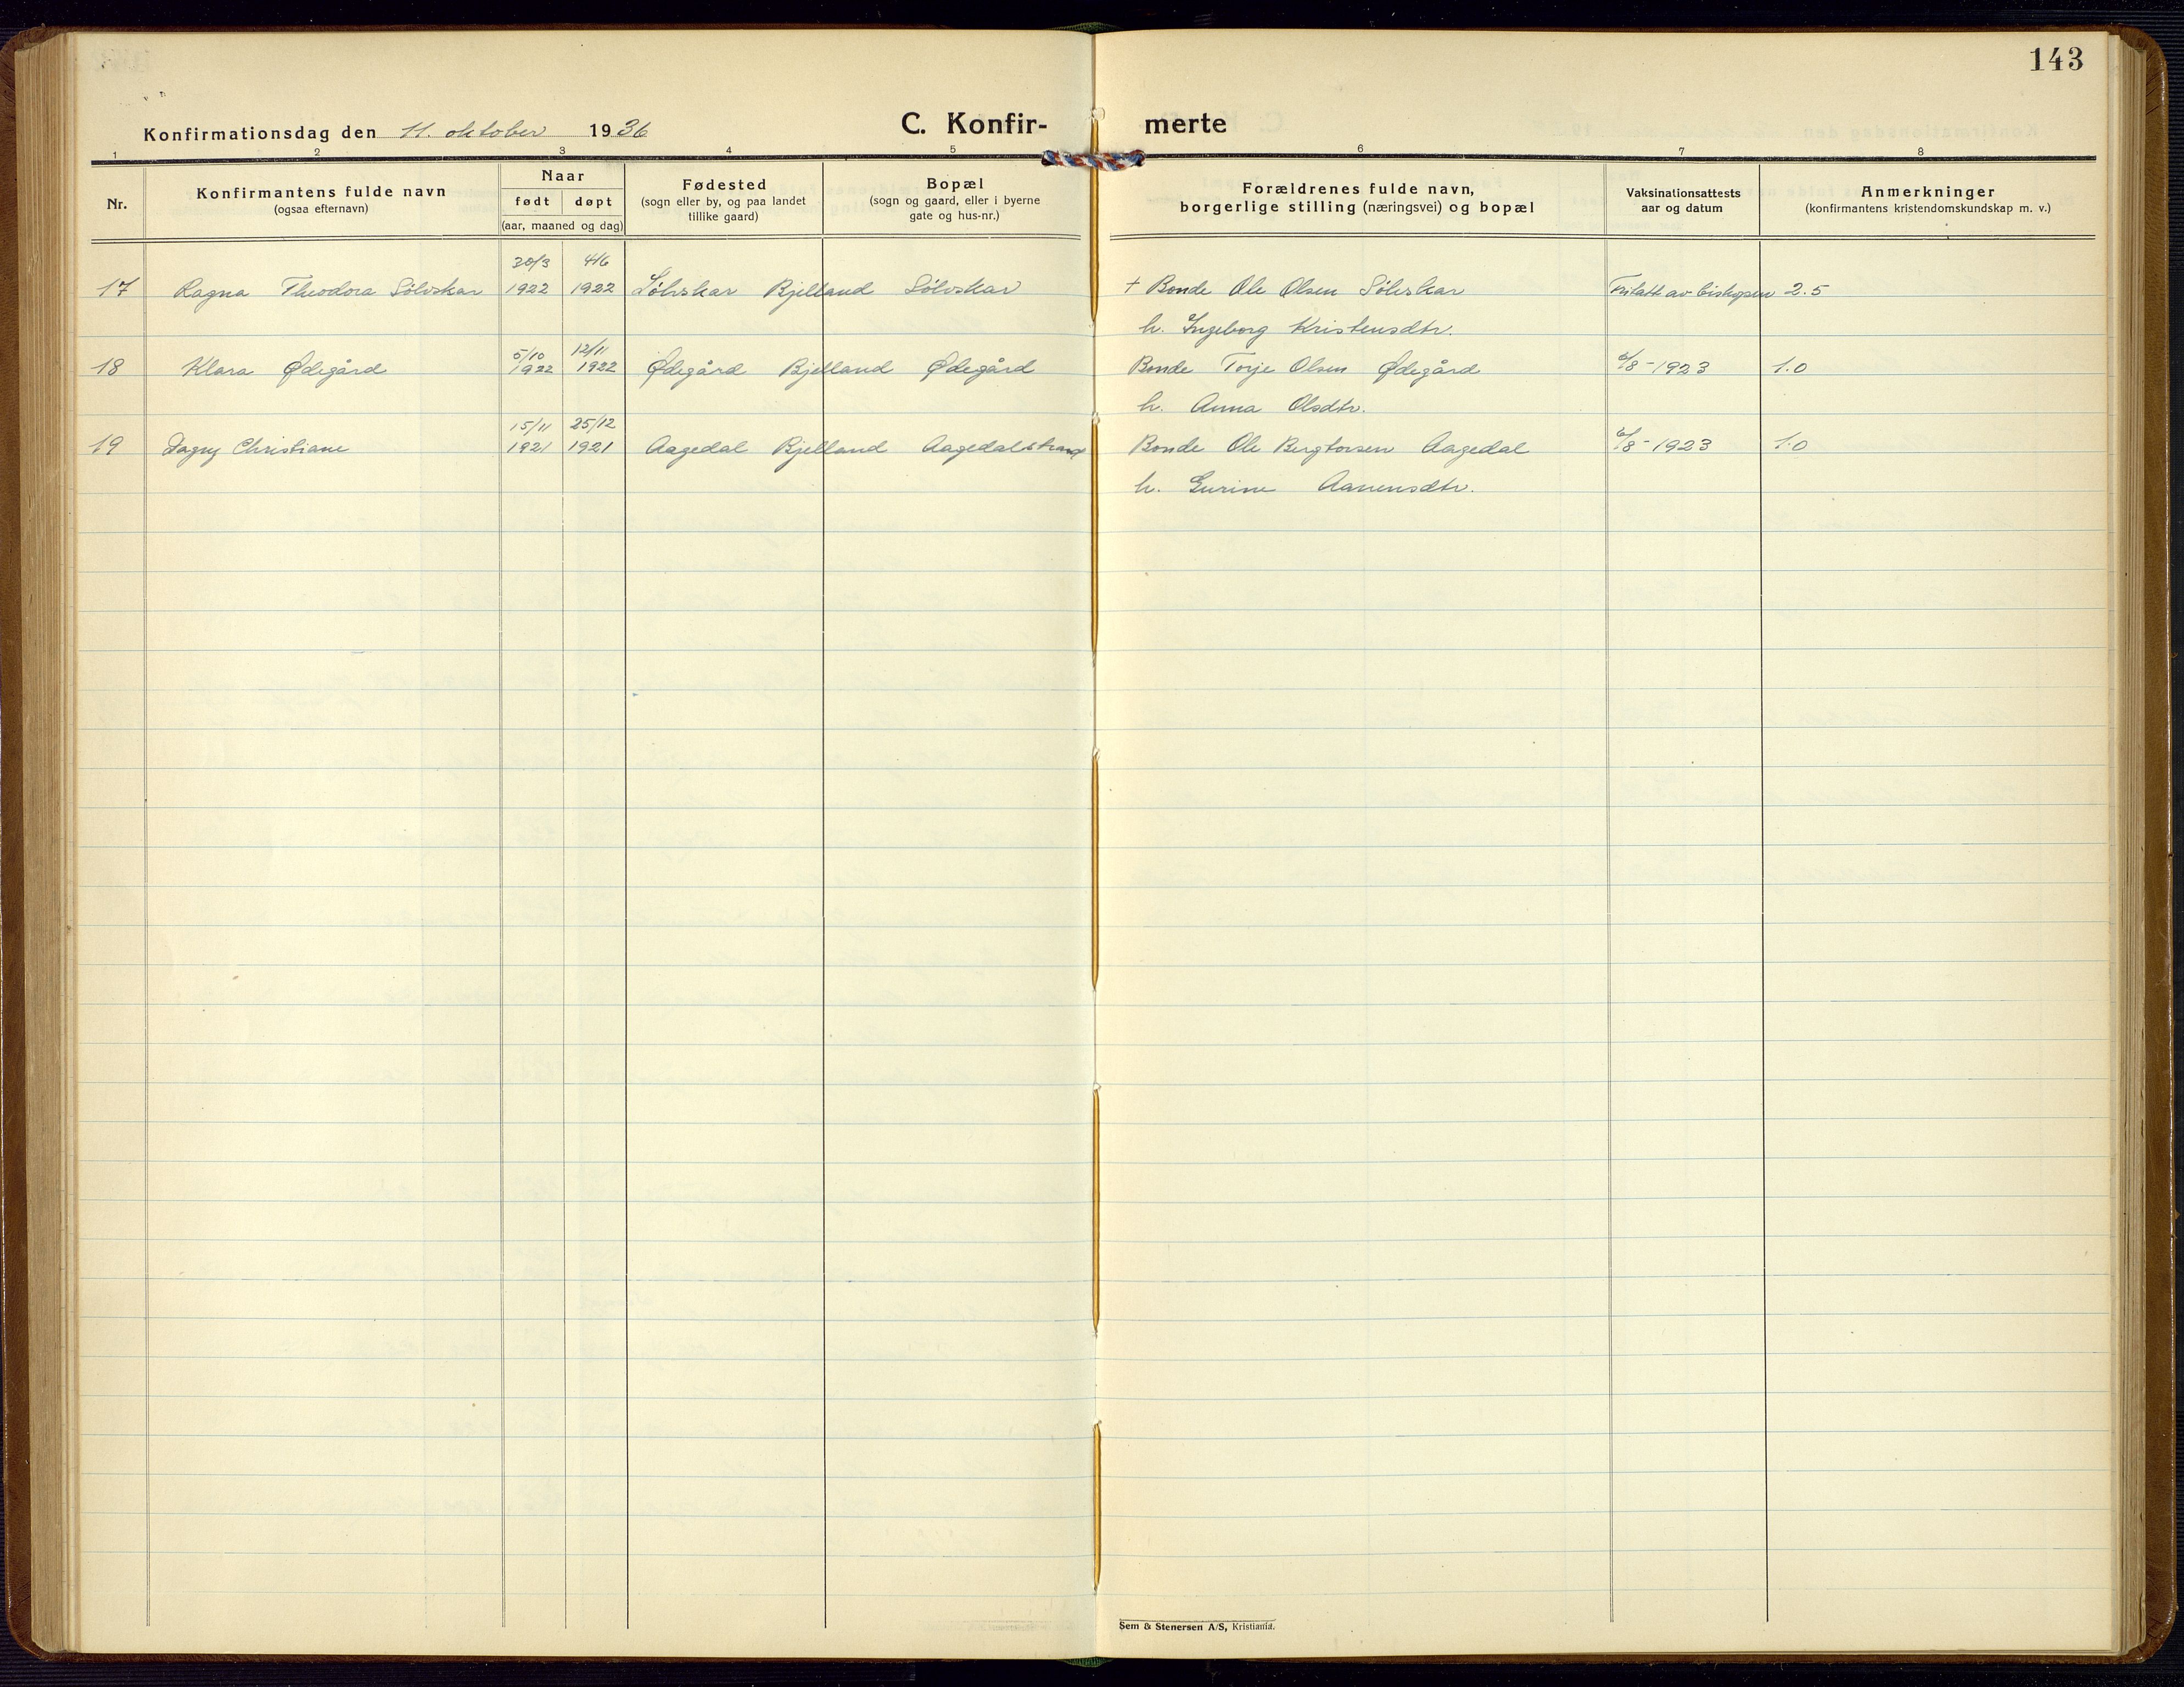 143
Konfirmationsdag den 11. oktober 1936 C. Konfir- merte
1 2 3 4 5 6 7 8
Nr.
Konfirmantens fulde navn
(ogsaa efternavn)
Naar
født døpt
(aar, maaned og dag)
Fødested
(sogn eller by, og paa landet
tillike gaard)
Bopæl
(sogn og gaard, eller i byerne
gate og hus-nr.)
Forældrenes fulde navn,
borgerlige stilling (næringsvei) og bopæl
Vaksinationsattests
aar og datum
Anmerkninger
(konfirmantens kristendomskundskap m. v.)
30/3 4/6
17 Ragna Theodora Sölvskar 1922 1922 Sölvskar Bjelland Sölvskar + Bonde Ole Olsen Sölvskar Fritatt av biskopen 2.5
h. Ingeborg Kristensdtr.
5/10 12/11
18 Klara Ødegård 1922 1922 Ødegård Bjelland Ødegård Bonde Torje Olsen Ødegård 6/8-1923 1.0
h. Anna Olsdtr.
15/11 25/12
19 Dagny Christiane 1921 1921 Aagedal Bjelland Aagedalstrand Bonde Ole Bergtorsen Aagedal 6/8-1923 1.0
h. Gurine Aanensdtr.
Sem & Stenersen A/S, Kristiania.